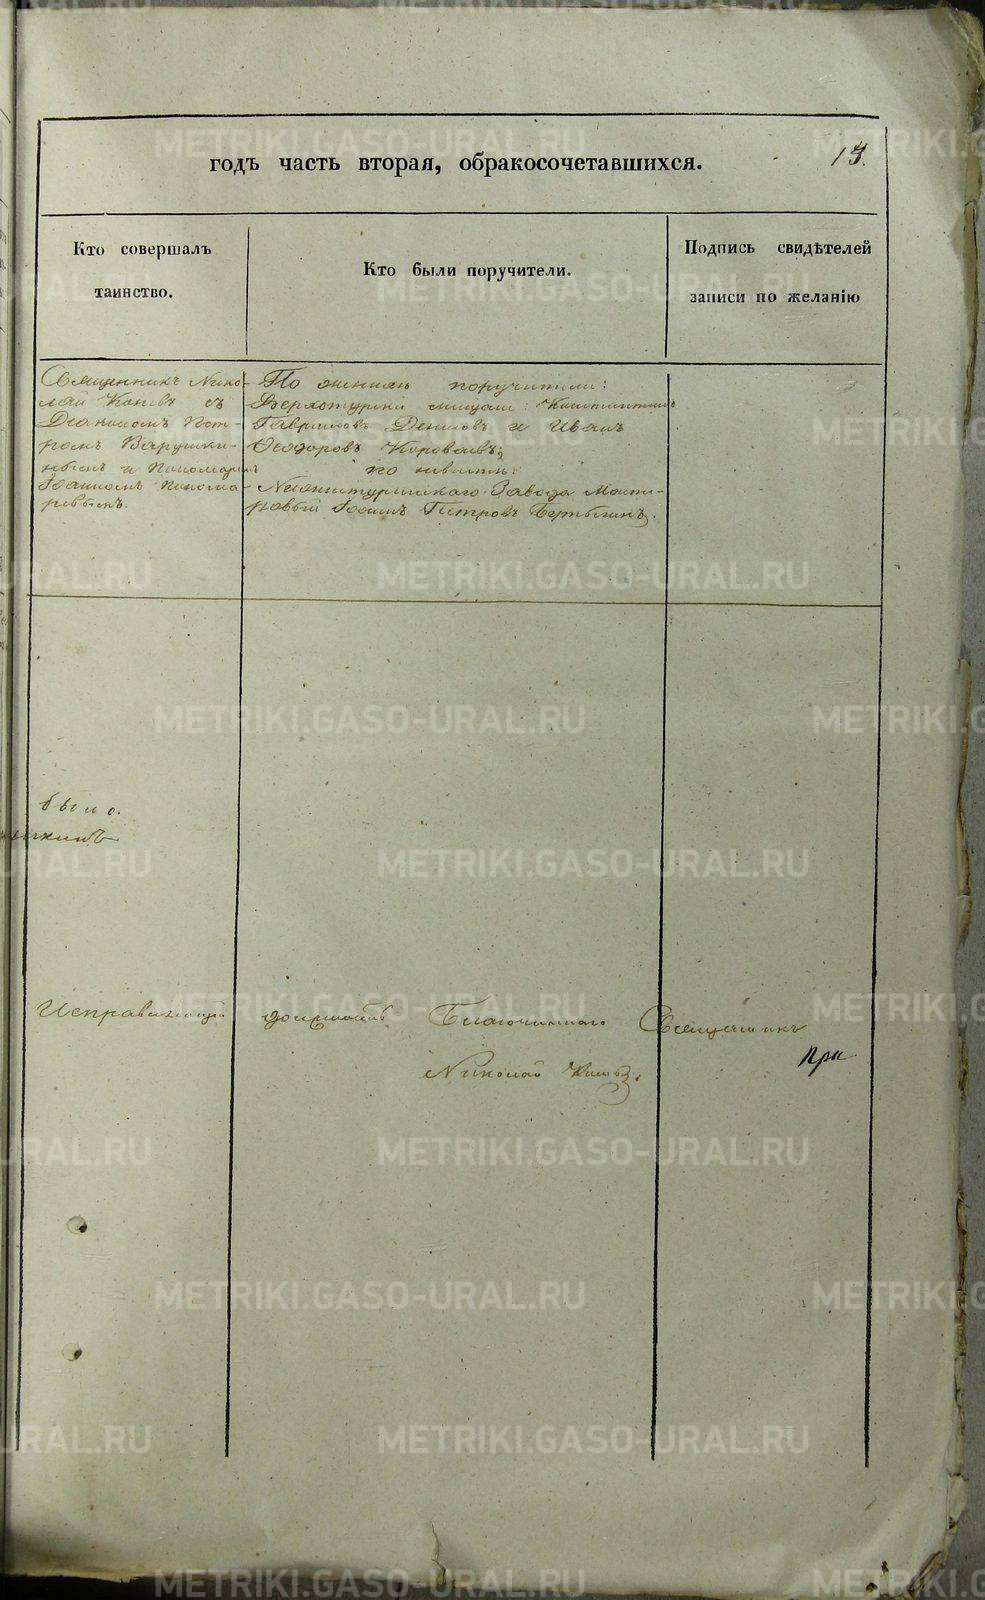 годъ часть вторая, обракосочетавшихся.
13.
Кто совершалъ
таинство.
Кто были поручители.
Подпись свидѣтелей
записи по желанію
Священникъ Нико-
лай Коневъ съ
Діакономъ Пет-
ромъ Варушки-
нымъ и Пономаремъ
Іоанномъ Понома-
ревымъ.
По женихѣ поручители:
Верхотурски мещане: Константинъ
Гавриловъ Дениловъ и Иванъ
Ѳеодоровъ Короваевъ;
по невѣстѣ:
Нижнетуринскаго Завода Масте-
ровый Іоаннъ Петровъ
было.
Исправляющій должность Благочиннаго Священникъ
Николай Коневъ.
При
METRIKI.GASO-URAL.RU